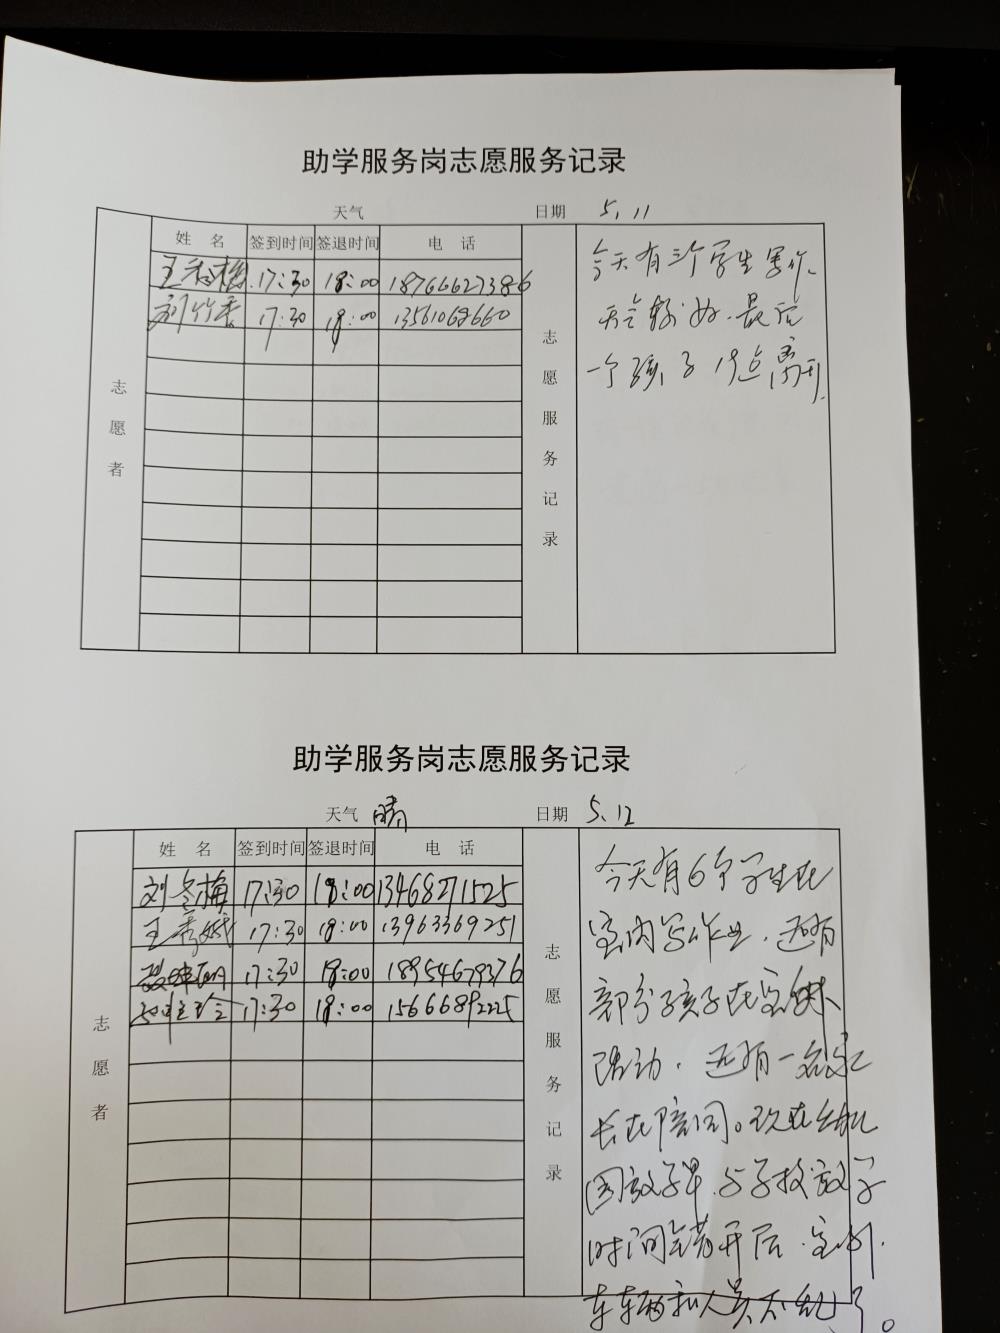 助学服务岗志愿服务记录
天气 日期 5.11
姓 名 签到时间 签退时间 电 话
王 17:30 18:00 18766627386
刘竹香 17:30 18:00 13561068660
志愿者
志愿服务记录
今天有三个学生写作、
天气较好.最后
一个孩子18点离开.
助学服务岗志愿服务记录
天气 晴 日期 5.12
姓 名 签到时间 签退时间 电 话
刘冬梅 17:30 18:00 13468271525
王秀娥 17:30 18:00 13963369251
17:30 18:00 18954679376
17:30 18:00 15666892225
志愿者
志愿服务记录
今天有6个学生在
室内写作业.还有
部分孩子在室外
活动.还有一名家
长在陪同。现在幼儿
园放学早.与学校放学
时间错开后.室外.
车辆和人员不乱了。